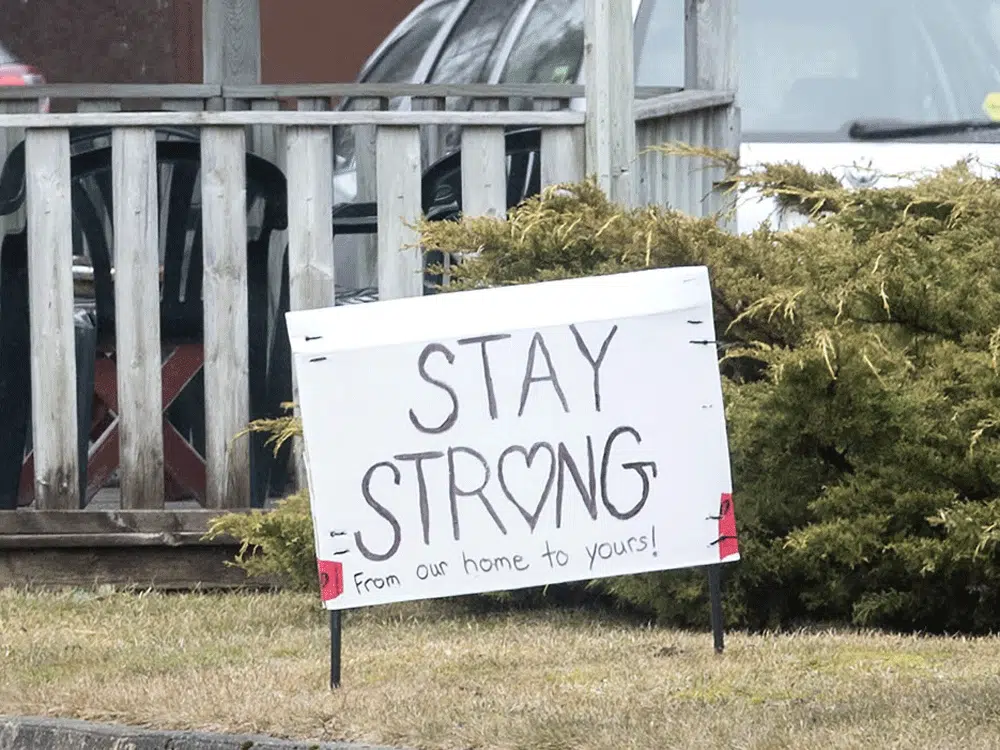 STAY
STR♡NG
From our home to yours!